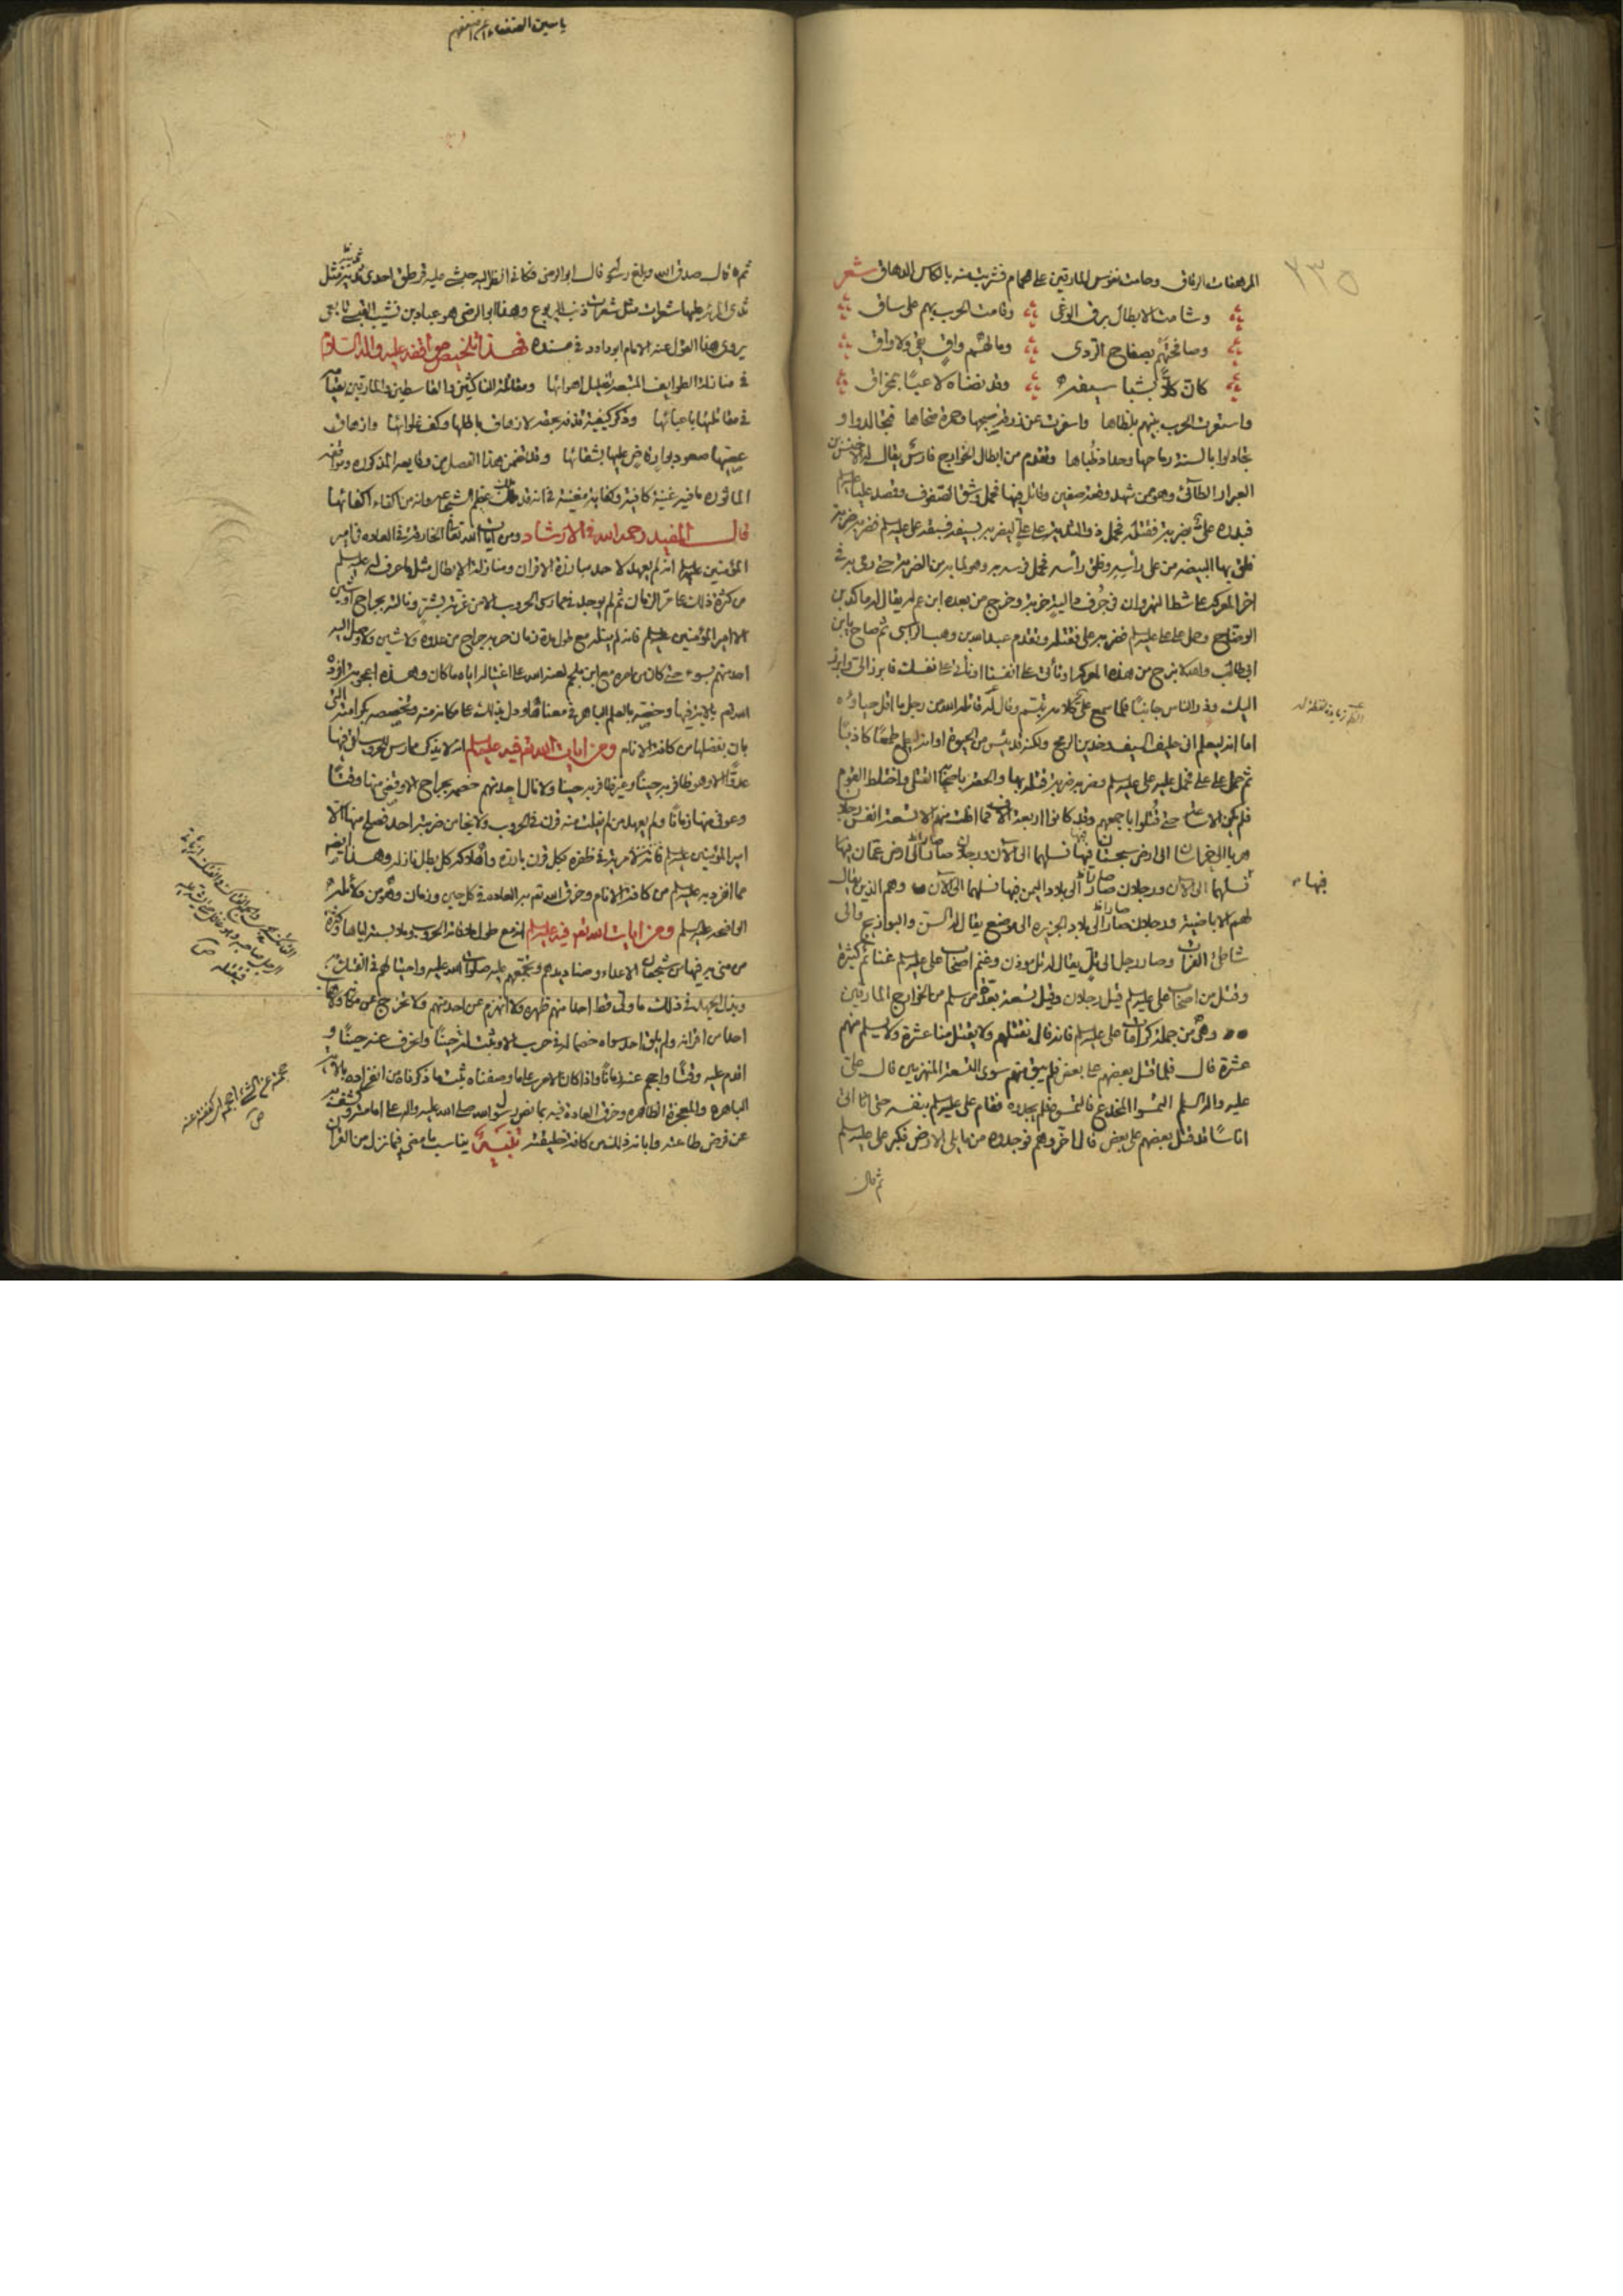 ٢٣٥
المرهفات الرقاق وحامت نفوس المارقين على حمام فشربت منه بالكاس الدهاق شعر
وشامت الابطال برق الوغى وقامت الحرب بهم على ساق
وصافحتهم بصفاح الردى ومالهم واقٍ يقي ولا واق
كان كلاً بشبا سيفه وقد نضاه لاعبًا بمخراق
واستعرت الحرب بينهم بلظاها واسفرت عن زرقة صبحها وحمرة ضحاها فتجالدوا و
تجادلوا بالسنة رماحها وحداد ظباها وتقدم من ابطال الخوارج فارس يقال له الاخنس بن
العيزار الطائى وهو ممن شهد وقعة صفين وقاتل فيها فحمل وشق الصفوف وقصد عليا عليه السلم
فبدره على بضربة فقتله فحمل ذو الثدية على على ليضربه بسيفه فسبقه على عليه السلم فضربه ضربة
فلق بها البيضة من على رأسه وفلق رأسه فحمل فرسه به وهو لما به من الضربة حتى رمى به فى
اخر المعركة على شط النهروان في جُرف دالية خربة وخرج من بعده ابن عم له يقال له مالك بن
الوضاح وحمل على على عليه السلم فضربه على فقتله وتقدم عبد الله بن وهب الراسبى ثم صاح يابن
ابى طالب والله لا نبرح من هذه المعركة او تأتى على انفسنا او نأتى على نفسك فابرز الى وابرز
اليك وذر الناس جانبًا فلما سمع على كلامه تبسم وقال له قاتله الله من رجل ما اقل حياؤه
اما انه ليعلم انى حليف السيف وخدين الرمح ولكنه قد يئس من الحيوة او انه ليطمع طمعًا كاذبًا
ثم حمل على على فحمل عليه على عليه السلم وضربه ضربة قتله بها والحقه باصحابه القتلى واختلط القوم
فلم يكن الا ساعة حتى قُتلوا باجمعهم وقد كانوا اربعة الاف فما افلت منهم الا تسعة انفس رجلان
هربا الى خراسان الى ارض سجستان فيها نسلهما الى الآن ورجلان صارا الى ارض عمان فيها
نسلهما الى الآن ورجلان صارا الى بلاد اليمن فيها نسلهما الى الآن وهم الذين يقال
لهم الاباضية ورجلان صارا الى بلاد الجزيرة الى موضع يقال له السن والبوازيج والى
شاطئ الفرات وصار رجل الى تلّ يقال له تل موزن وغنم اصحاب على عليه السلم غنائم كثيرة
وقتل من اصحاب على عليه السلم قيل رجلان وقيل تسعة بعدّة من سلم من الخوارج المارقين
وهى من جملة كرامات على عليه السلم فانه قال نقتلهم ولا يقتل منا عشرة ولا يسلم منهم
عشرة قال فلما قتل بعضهم على بعض فلم يبق منهم سوى التسعة المنهزمين قال على
عليه والم السلم التمسوا المخدع فالتمسوه فلم يجدوه فقام على عليه السلم بنفسه حتى اتا الى
اناسًا قد قتل بعضهم على بعض قال اخّروهم فوجدوه مما يلى الارض فكبر على عليه السلم
ثم قال
فيها
ثم قال صدق الله وبلغ رسوله قال ابو الوضى فكانى انظر اليه حبشى عليه قرطق احدى ثدييه مثل
ثدى المرءة عليها شعرات مثل شعرات ذنب اليربوع وهذا ابو الوضى هو عباد بن نسيب القيسى تابعى
يروى هذا القول عنه الامام ابو داود فى مسنده فهذا تلخيص مواقفه عليه واله السلام
فى منازلة الطوايف المتبعة تضليل اهوائها ومقاتلة الناكثين والقاسطين والمارقين
فى مقاتلتها باعبائها وذكر كيفية قذفه بحقه لازهاق باطلها وكف غلوائها وارهاق
عصبتها صعود بوار قاضٍ عليها بشقائها وقد تضمن هذا الفصل من وقايعه المذكورة ومواقفه
الماثوره ما فيه غنية كافية وكفاية مغنية فى انه قد ملك عظيم الشجاعة وانه من اكفاء اكفائها
قال المفيد رحمه الله فى الارشاد ومن ايات الله تعالى الخارقة فى العادة فى امير
المؤمنين عليه السلم انه لم يعهد لاحد مبارزة الاقران ومنازلة الابطال مثل ما عرف له عليه السلم
من كثرة ذلك على مر الزمان ثم لم يوجد فى ممارسى الحروب الا من عرته بشر ونالته بجراح او شين
الا امير المؤمنين عليه السلم فانه لم ينله مع طول مدة زمان حربه جراح من عدوه ولا شين ولا وصل اليه
احد منهم بسوء حتى كان من امره مع ابن ملجم لعنه الله على اغتياله اياه ما كان وهذه اعجوبة افرده
الله تعم بالاية فيها وخصه بالعلم الباهر فى معناها ودل بذلك على مكانه منه وتخصيصه بكرامته التى
بان بفضلها من كافة الانام ومن ايات الله تعم فيه عليه السلم انه لا يذكر ممارس للحروب لقى فيها
عدوًا الا وهو ظافر به حينًا وغير ظافر به حينًا ولا نال احد منهم خصمه بجراح الا وقضى منها وقتًا
وعوفى منها زمانًا ولم يعهد من لم يفلت منه قرن فى الحروب ولا نجا من ضربته احد فصلح منها الا
امير المؤمنين عليه السلم فانه لا مرية فى ظفره بكل قرن بارزه واهلاكه كل بطل نازله وهذا ايضا
مما انفرد به عليه السلم من كافة الانام وخرق الله تعم به العادة فى كل حين وزمان وهو من دلائله
الواضحة عليه السلم ومن ايات الله تعم فيه عليه السلم انه مع طول ملاقاته الحروب وملابسته اياها وكثرة
من منى به فيها من شجعان الاعداء وصناديدهم وتجمعهم عليه صلوات الله عليه واحتيالهم فى الفتك به
وبذل الجهد فى ذلك ما ولى قط احدا منهم ظهره ولا انهزم عن احد منهم ولا تزحزح عن مكانه ولا هاب
احدا من اقرانه ولم يلق احد سواه خصما له فى حرب الا وثبت له حينًا وانحرف عنه حينًا و
اقدم عليه وقتًا واحجم عنه زمانًا واذا كان الامر على ما وصفناه ثبت ما ذكرناه من انفراده بالاية
الباهرة والمعجزة الظاهره وخرق العادة فيه بما نص رسول الله صلى الله عليه واله على امامته وكشف به
عن فرض طاعته وابانه بذلك من كافة خليقته تنبيه يناسب ما مضى فيما نزل من القران